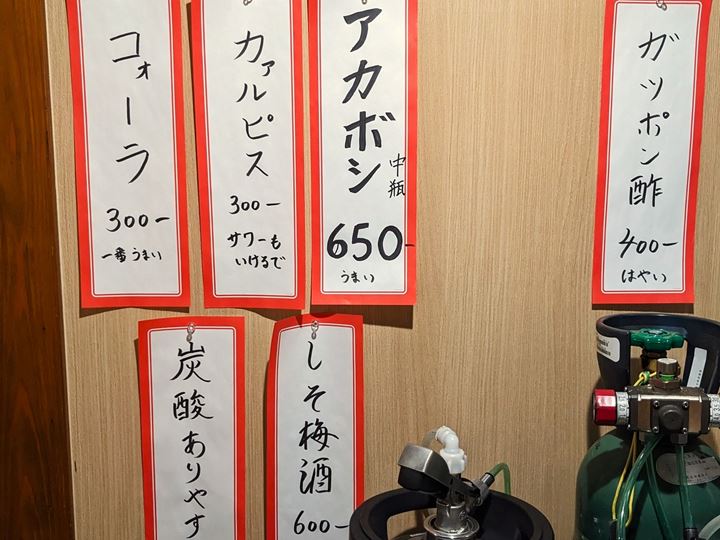 コォーラ
300-
一番うまい
カァルピス
300-
サワーも
いけるで
アカボシ
中瓶
650-
うまい
ガツポン酢
400-
はやい
炭酸ありやす
しそ梅酒
600-